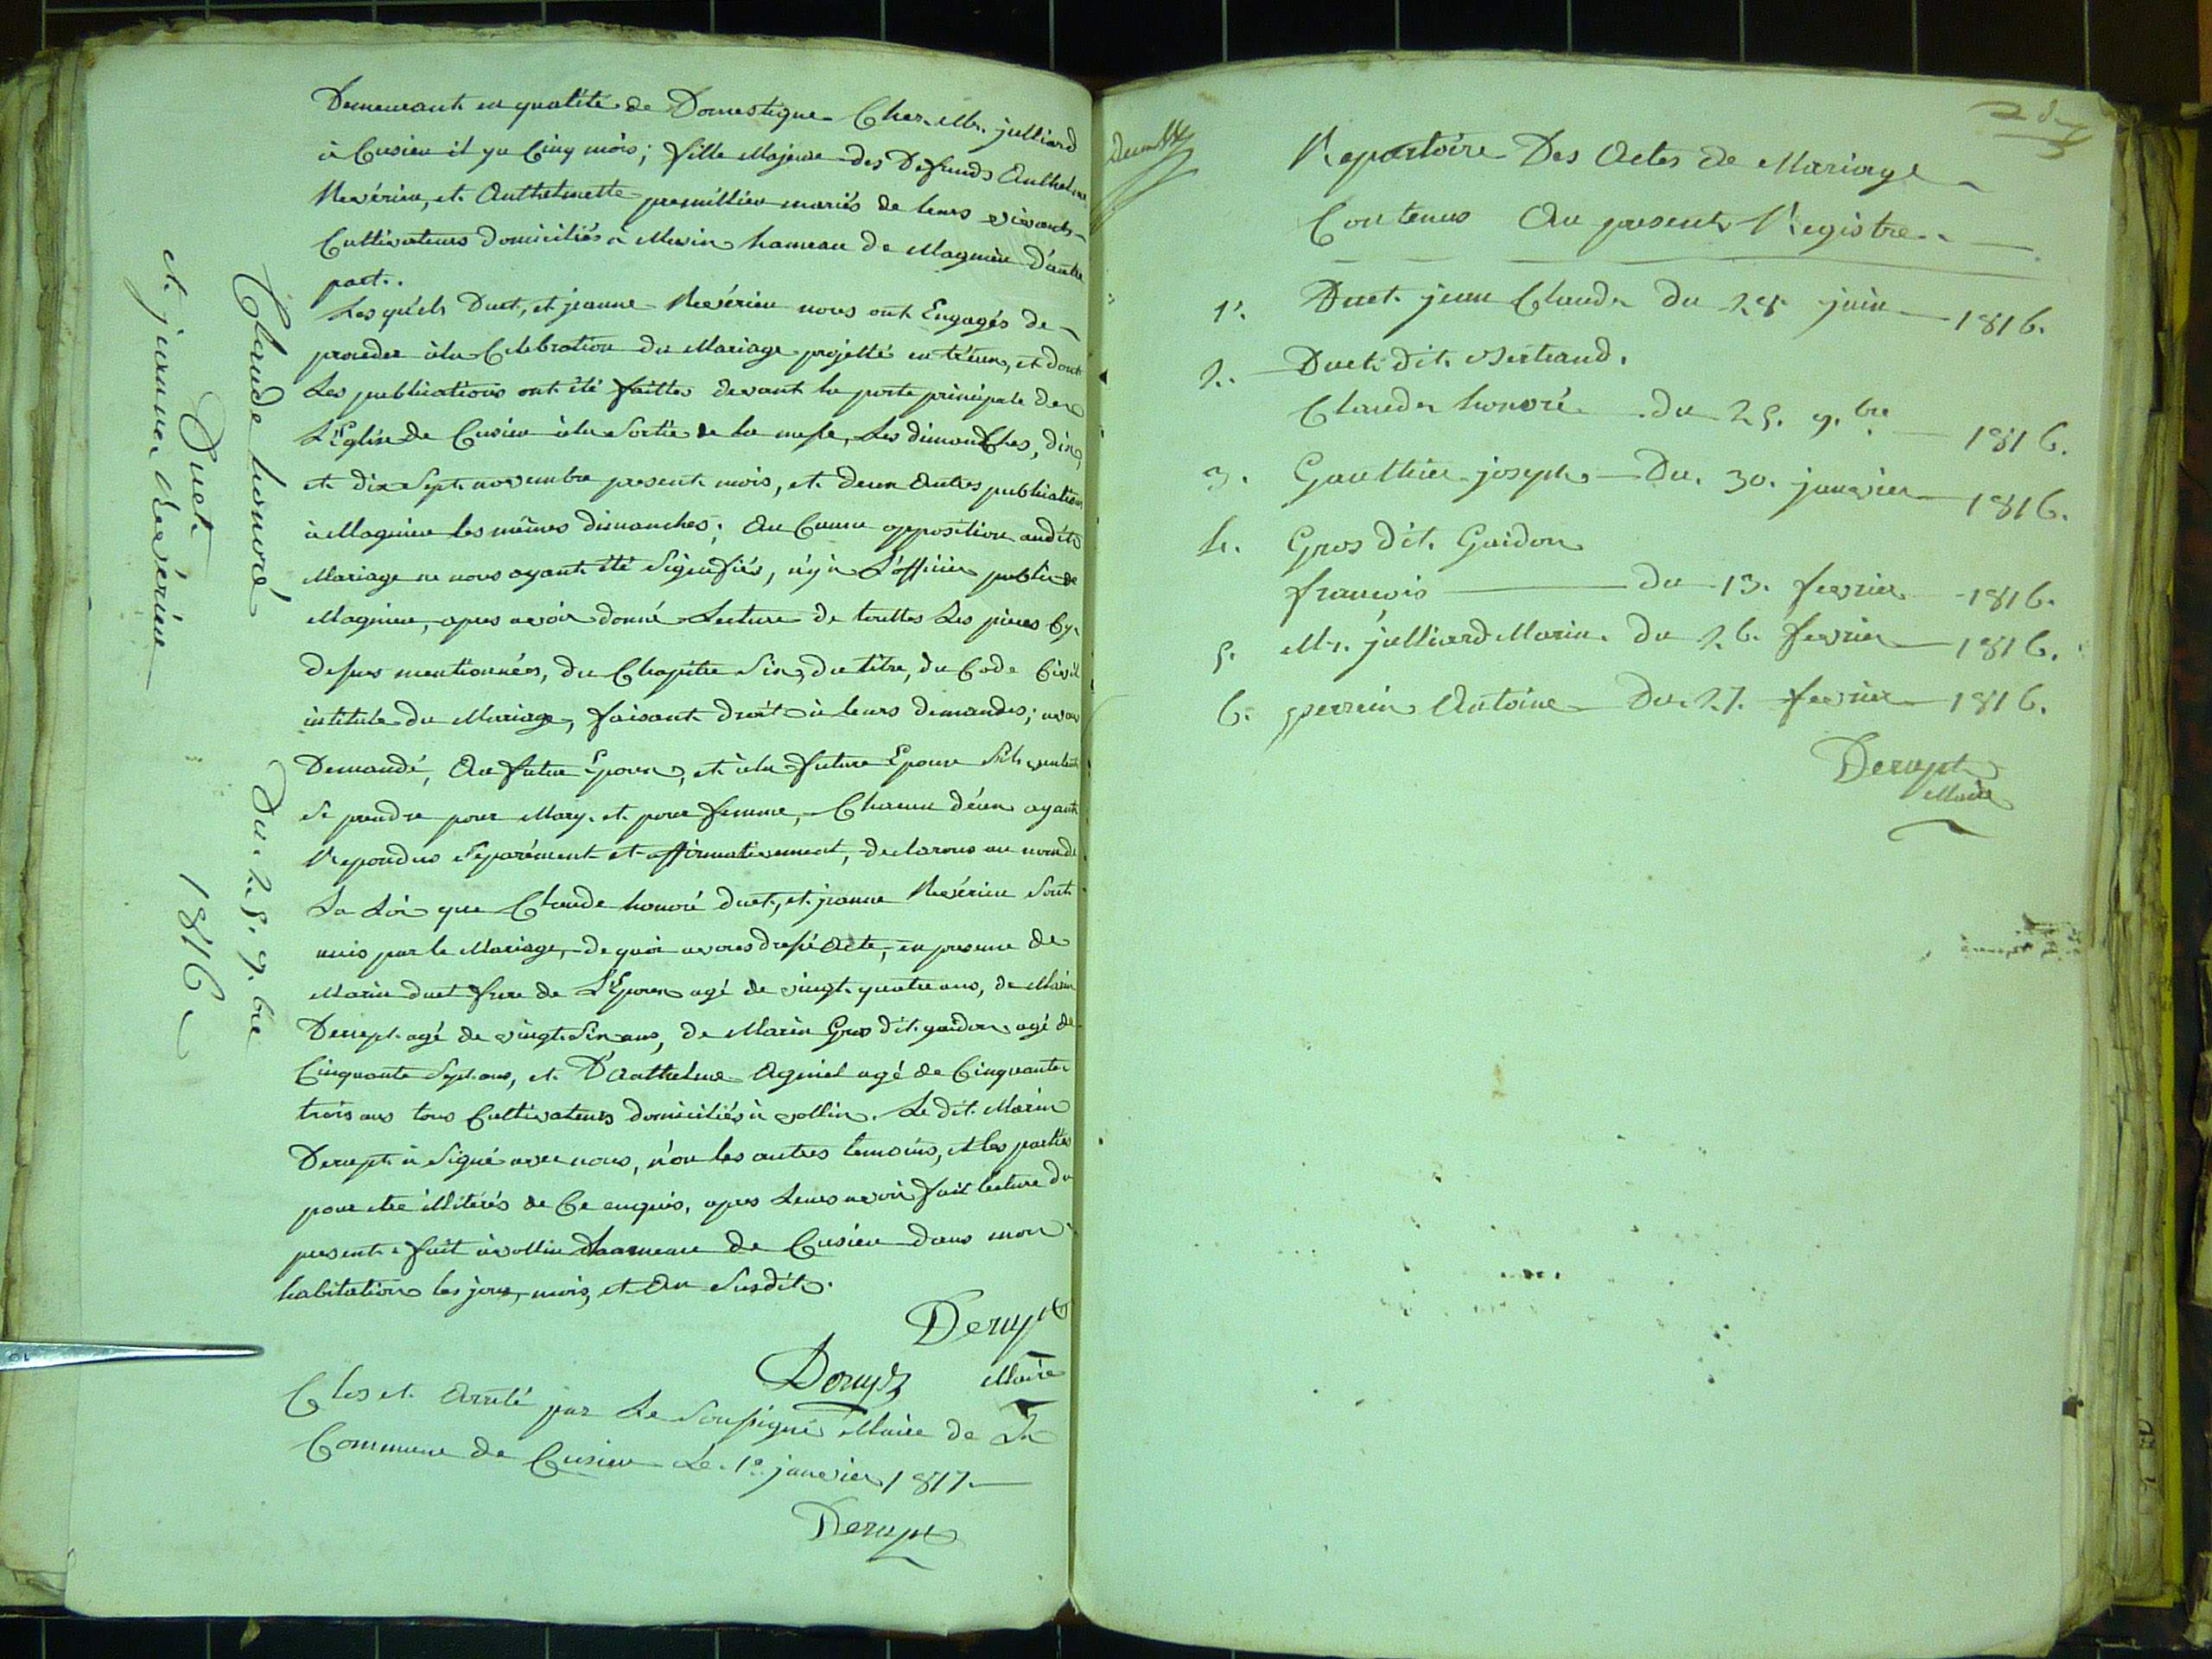 Demeurant en qualité de Domestique Chez Mr. julliard
à Cusieu il ya Cinq mois; fille Majeure des Defunds Anthelme
Revérieu, et Anthelmette premillieu mariés de leurs vivants
Cultivateurs domiciliés à hameau de Magnieu D'autre
part.
Lesquels Duet, et jeanne Revérieu nous ont Engagés de
proceder àla Celebration du Mariage projetté entr'eux, et dont
Les publications ont été faittes devant la porte principale de
L'Eglise de Cusieu àla Sortie de la messe, Les dimanches, dix,
et dix Sept novembre present mois, et deux Autres publications
à Magnieu les mêmes dimanches; AuCunne opposition audit
Mariage ne nous ayant été Signifiés, n'y à L'officier public de
Magnieu, apres avoir donné Lecture de touttes Les pieces Cy
dessus mentionnées, du Chapitre Six, du titre, du Code Civil
intitule du Mariage, faisant droit à leurs demandes; avons
Demandé, Au futur Epoux, et àla future Epouse S'ils veulent
Se prendre pour Mary. et pour femme, Chacun d'eux ayant
Repondus Séparément et affirmativement, declarons au nom de
La Loi que Claude honoré duet, et jeanne Revérieu Sont
unis par le Mariage, de quoi avons dressé Acte, en presence de
Marin duet frere de L'Epoux agé de vingt quatre ans, de Marin
Derupt agé de vingt Six ans, de Marin Gros dit guidon agé de
Cinquante Sept ans, et D'Anthelme Agniel agé de Cinquante
trois ans tous Cultivateurs domiciliés à vollin. Le dit Marin
Derupt à Signé avec nous, n'on les autres temoins, et les parties
pour etre illiterés de Ce enquis, apres Leurs avoir fait lecture du
present. fait à vollin hameau de Cusieu dans mon
habitation les jour, mois, et An Susdit.
Derupt
Derupt Maire
Clos et Arrêté par Le Soussigné Maire de La
Commune de Cusieu Le 1er janvier 1817.
Derupt
Claude honoré
Duet
et jeanne Revérieu
Du 25. 9.bre
1816
Repertoire Des Actes de Mariage
Contenus Au present Registre.
1. Duet jean Claude du 25 juin 1816.
2. Duet dit Bertrand.
Claude honoré du 25. 9.bre 1816.
3. Gauthier joseph Du. 30. janvier 1816.
4. Gros dit Guidon
françois du 13. fevrier 1816.
5. Mr. julliard Marin. du 26. fevrier 1816.
6. perrin Antoine Du. 27. fevrier 1816.
Derupt
Maire